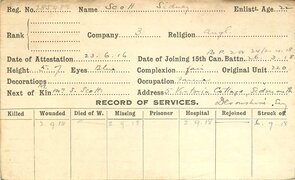 Reg. No. Name Scott Sidney Enlist. Age 22
Rank Company 3 Religion Angl
Date of Attestation 23.6.16 Date of Joining 15th Can. Battn
Height Eyes Blue Complexion Fair Original Unit 220
Decorations Occupation Farmer
Next of Kin Mr S. Scott Address 5 Victoria Cottage, Sidmouth
RECORD OF SERVICES. Devonshire, Eng
Killed Wounded Died of W. Missing Prisoner Hospital Rejoined Struck off
2 9 18 2.9.18 9.18 9.18